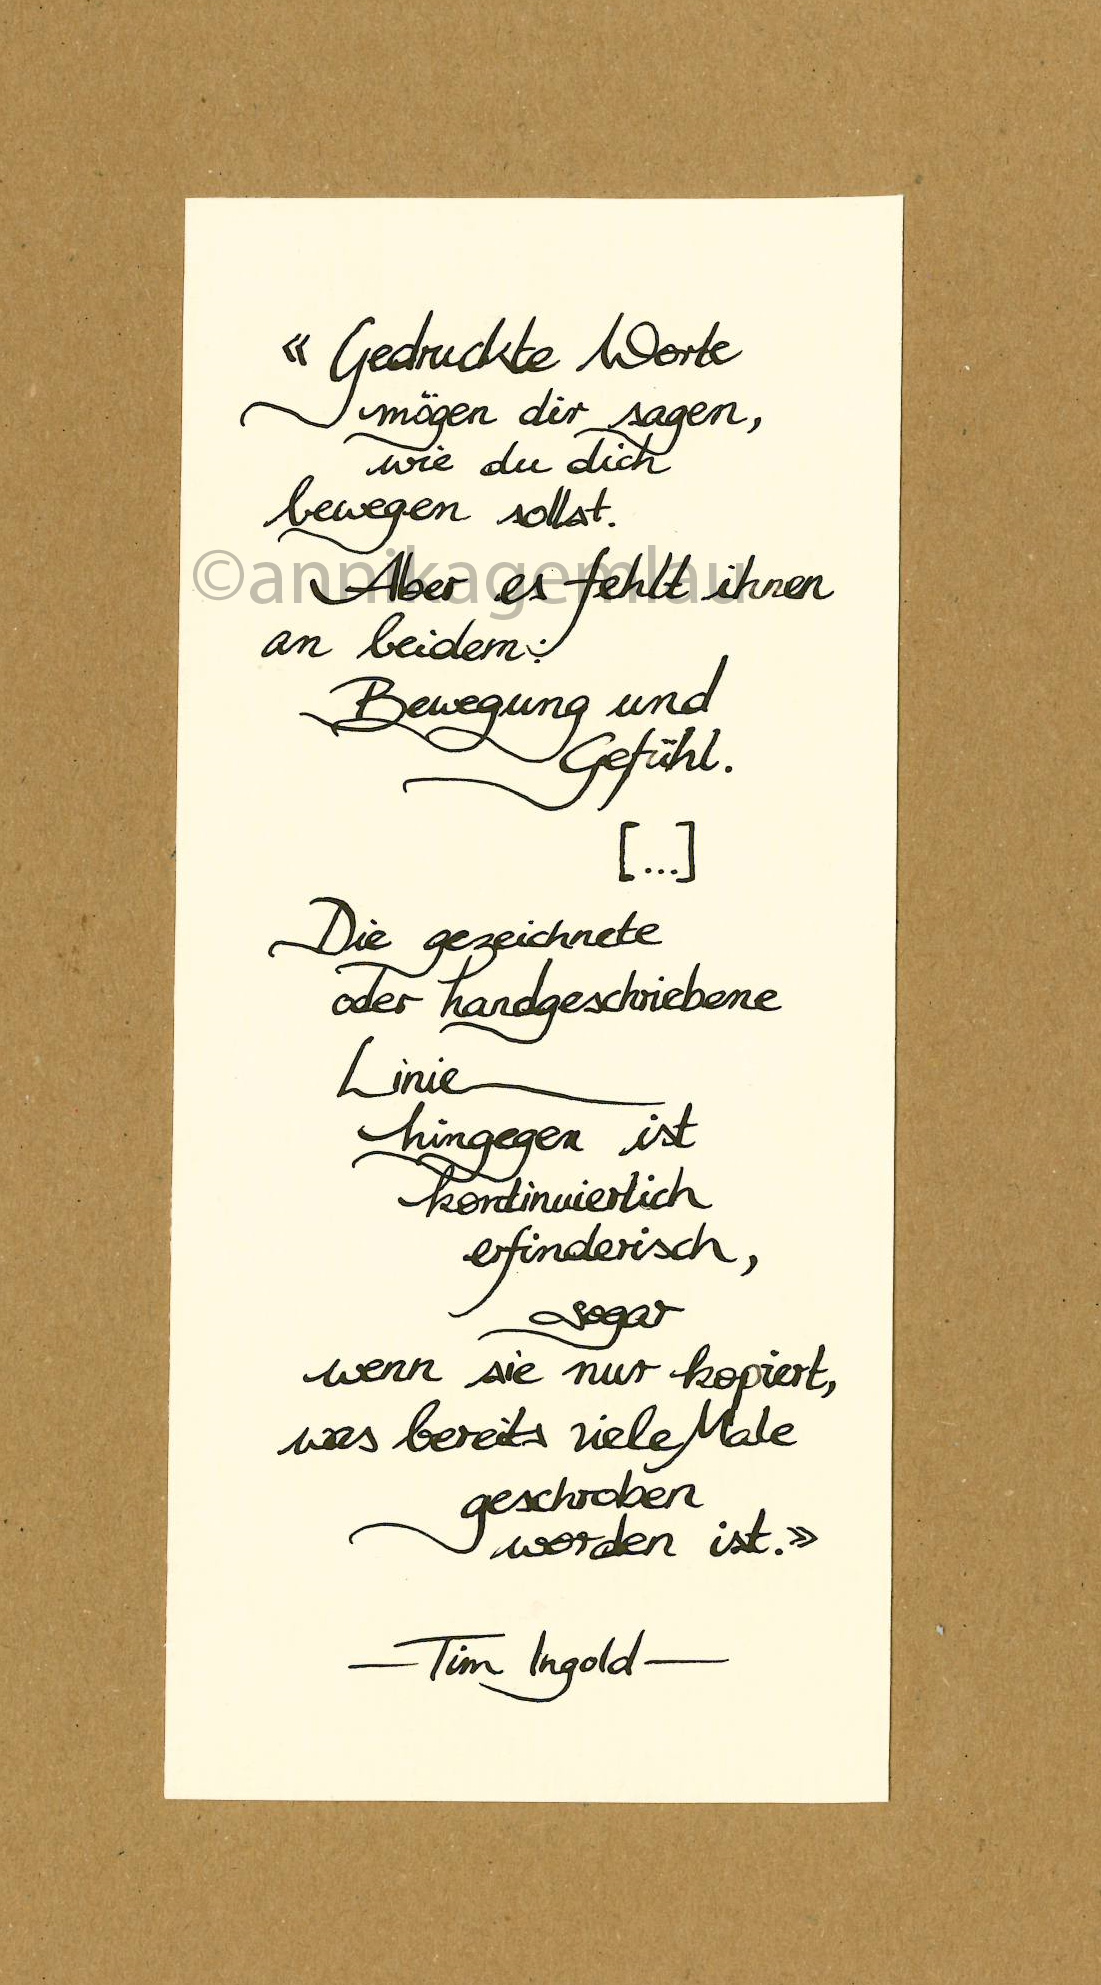 « Gedruckte Worte
mögen dir sagen,
wie du dich
bewegen sollst.
©annikagemlau
Aber es fehlt ihnen
an beidem:
Bewegung und
Gefühl.
[...]
Die gezeichnete
oder handgeschriebene
Linie
hingegen ist
kontinuierlich
erfinderisch,
sogar
wenn sie nur kopiert,
was bereits viele Male
geschroben
worden ist.»
—Tim Ingold—